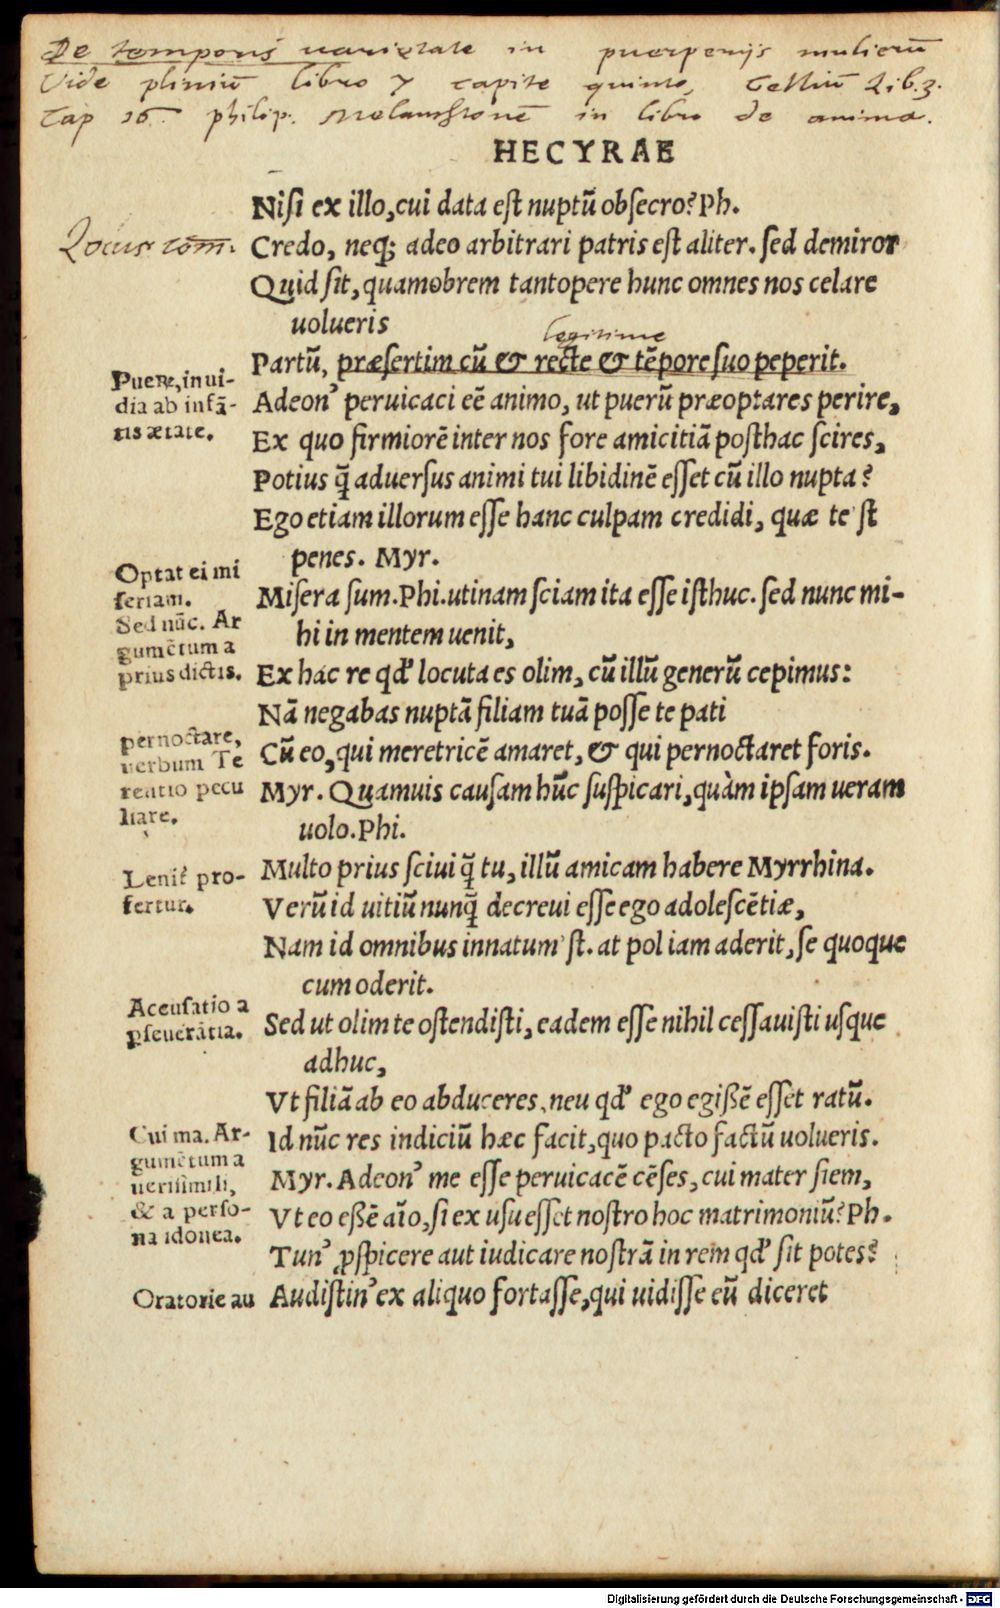 De temporis uarietate in puerperijs mulierū
Vide pliniū libro 7 capite quinto, Gelliū Lib.3.
Cap 16. philip. Melanchtonē in libro de anima.
HECYRAE
Nisi ex illo, cui data est nuptū obsecro? Ph.
Locus com̄.
Credo, neq; adeo arbitrari patris est aliter. sed demiror
Quid sit, quamobrem tantopere hunc omnes nos celare
uolueris
legitime
Partū, præsertim cū & recte & tēpore suo peperit.
Puerū, inui-
dia ab infā-
tis ætate.
Adeon' peruicaci eē animo, ut puerū præoptares perire,
Ex quo firmiorē inter nos fore amicitiā posthac scires,
Potius q̄ aduersus animi tui libidinē esset cū illo nupta?
Ego etiam illorum esse hanc culpam credidi, quæ te 'st
penes. Myr.
Optat ei mi
seriam.
Sed nūc. Ar
gumētum a
prius dictis.
Misera sum. Phi. utinam sciam ita esse isthuc. sed nunc mi-
hi in mentem uenit,
Ex hac re qd' locuta es olim, cū illū generū cepimus:
Nā negabas nuptā filiam tuā posse te pati
pernoctare,
uerbum Te
rentio pecu
liare.
Cū eo, qui meretricē amaret, & qui pernoctaret foris.
Myr. Quamuis causam hūc suspicari, quàm ipsam ueram
uolo. Phi.
Lenit̄ pro-
fertur.
Multo prius sciui q̄ tu, illū amicam habere Myrrhina.
Verū id uitiū nunq̄ decreui esse ego adolescētiæ,
Nam id omnibus innatum 'st. at pol iam aderit, se quoque
cum oderit.
Accusatio a
pseuerātia.
Sed ut olim te ostendisti, eadem esse nihil cessauisti usque
adhuc,
Vt filiā ab eo abduceres, neu qd' ego egißē esset ratū.
Cui ma. Ar-
gumētum a
uerisimili,
& a perso-
na idonea.
Id nūc res indiciū hæc facit, quo pacto factū uolueris.
Myr. Adeon' me esse peruicacē cēses, cui mater siem,
Vt eo eßē aīo, si ex usu esset nostro hoc matrimoniū? Ph.
Tun' ꝓspicere aut iudicare nostrā in rem qd' sit potes?
Oratorie au
Audistin' ex aliquo fortasse, qui uidisse eū diceret
Digitalisierung gefördert durch die Deutsche Forschungsgemeinschaft - DFG